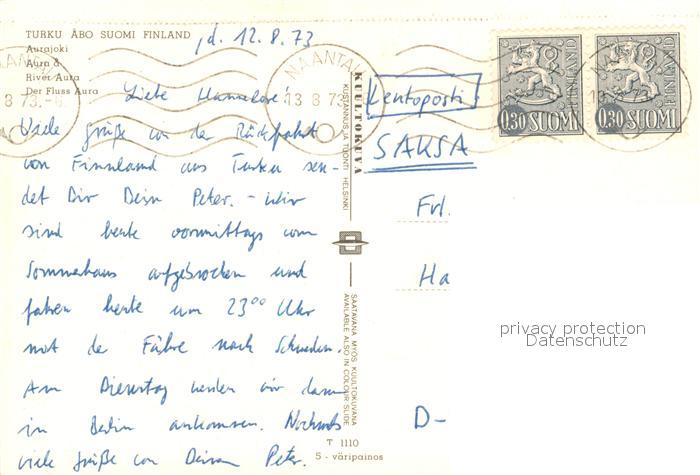 TURKU ÅBO SUOMI FINLAND
Aurajoki
Aura å
River Aura
Der Fluss Aura
, d. 12.8.73
Liebe Hannelore!
Viele Grüße von der Rückfahrt
von Finnland aus Turku sen-
det Dir Dein Peter. - Wir
sind heute vormittags vom
Sommerhaus aufgebrochen und
fahren heute um 23⁰⁰ Uhr
mit der Fähre nach Schweden.
Am Dienstag werden wir dann
in Berlin ankommen. Nochmals
viele Grüße von Deinem Peter.
T 1110
5 - väripainos
KUULTOKUVA
KUSTANNUS JA TUONTI HELSINKI
SAATAVANA MYÖS KUULTOKUVANA
AVAILABLE ALSO IN COLOUR SLIDE
NAANTALI
13 8 73
8 73.-8
Lentoposti
SAKSA
Frl.
Ha
D-
0,30 SUOMI
FINLAND
0,30 SUOMI
FINLAND
privacy protection
Datenschutz